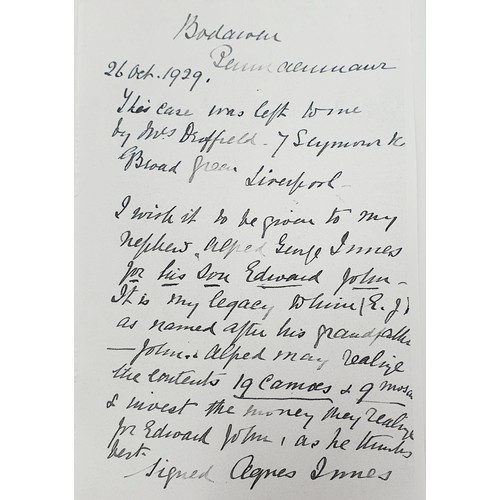 Bodawen
Penmaenmawr
26 Oct. 1929.
This case was left to me
by Mrs Driffield - 7 Seymour
Broad Green
Liverpool -
I wish it to be given to my
nephew Alfred George Innes
for his Son Edward John -
It is my legacy to him (E. J)
as named after his grandfather
- John. Alfred may realize
the contents 19 Camoes & 9 mosa
& invest the money they realize
for Edward John, as he thinks
best.
Signed Agnes Innes